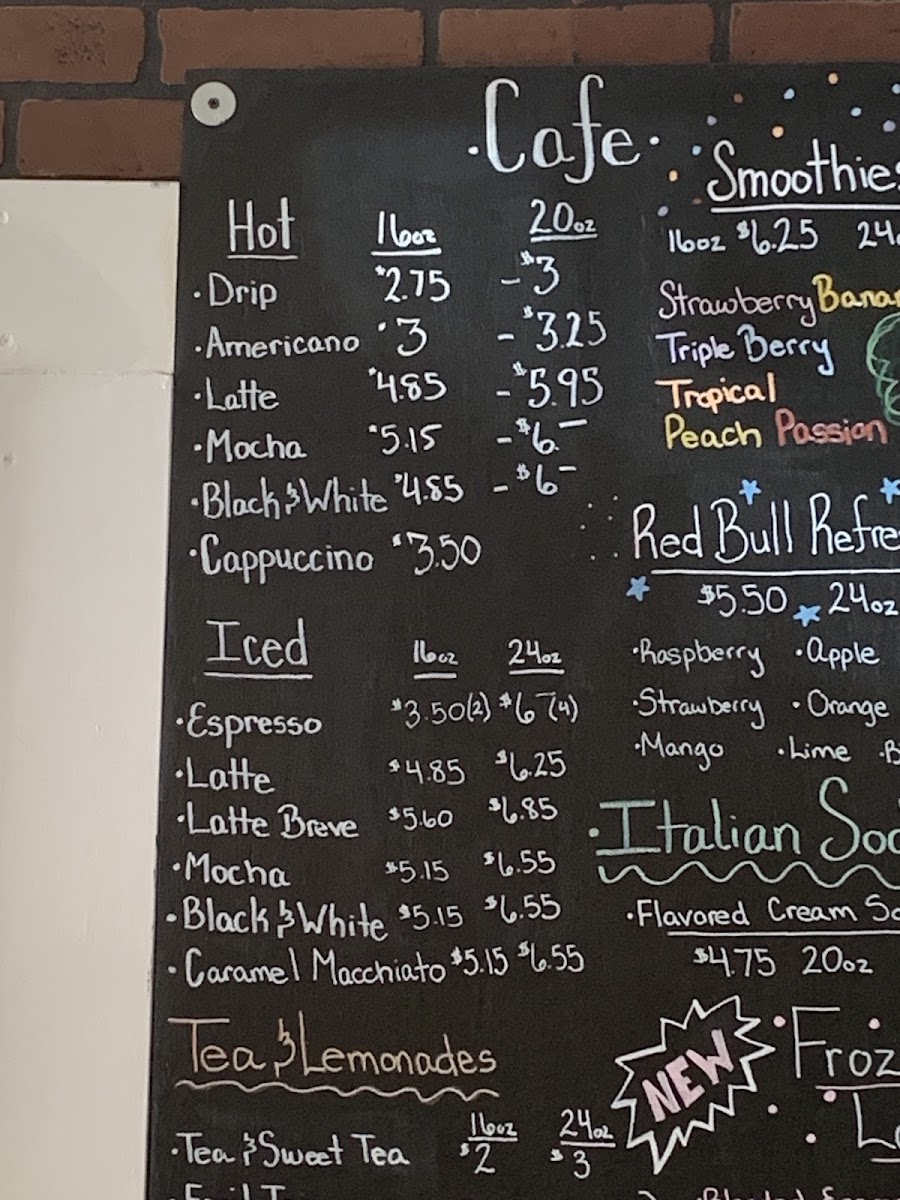 ·Cafe·
Hot 16oz 20oz
·Drip $2.75 - $3
·Americano $3 - $3.25
·Latte $4.85 - $5.95
·Mocha $5.15 - $6-
·Black & White $4.85 - $6-
·Cappuccino $3.50
Iced 16oz 24oz
·Espresso $3.50(2) $6-(4)
·Latte $4.85 $6.25
·Latte Breve $5.60 $6.85
·Mocha $5.15 $6.55
·Black & White $5.15 $6.55
·Caramel Macchiato $5.15 $6.55
Tea & Lemonades
16oz 24oz
·Tea & Sweet Tea $2 $3
Smoothies
16oz $6.25 24
Strawberry Banan
Triple Berry
Tropical
Peach Passion
Red Bull Refre
$5.50 24oz
·Raspberry ·Apple
·Strawberry ·Orange
·Mango ·Lime ·B
·Italian Sod
·Flavored Cream So
$4.75 20oz
NEW
Froz